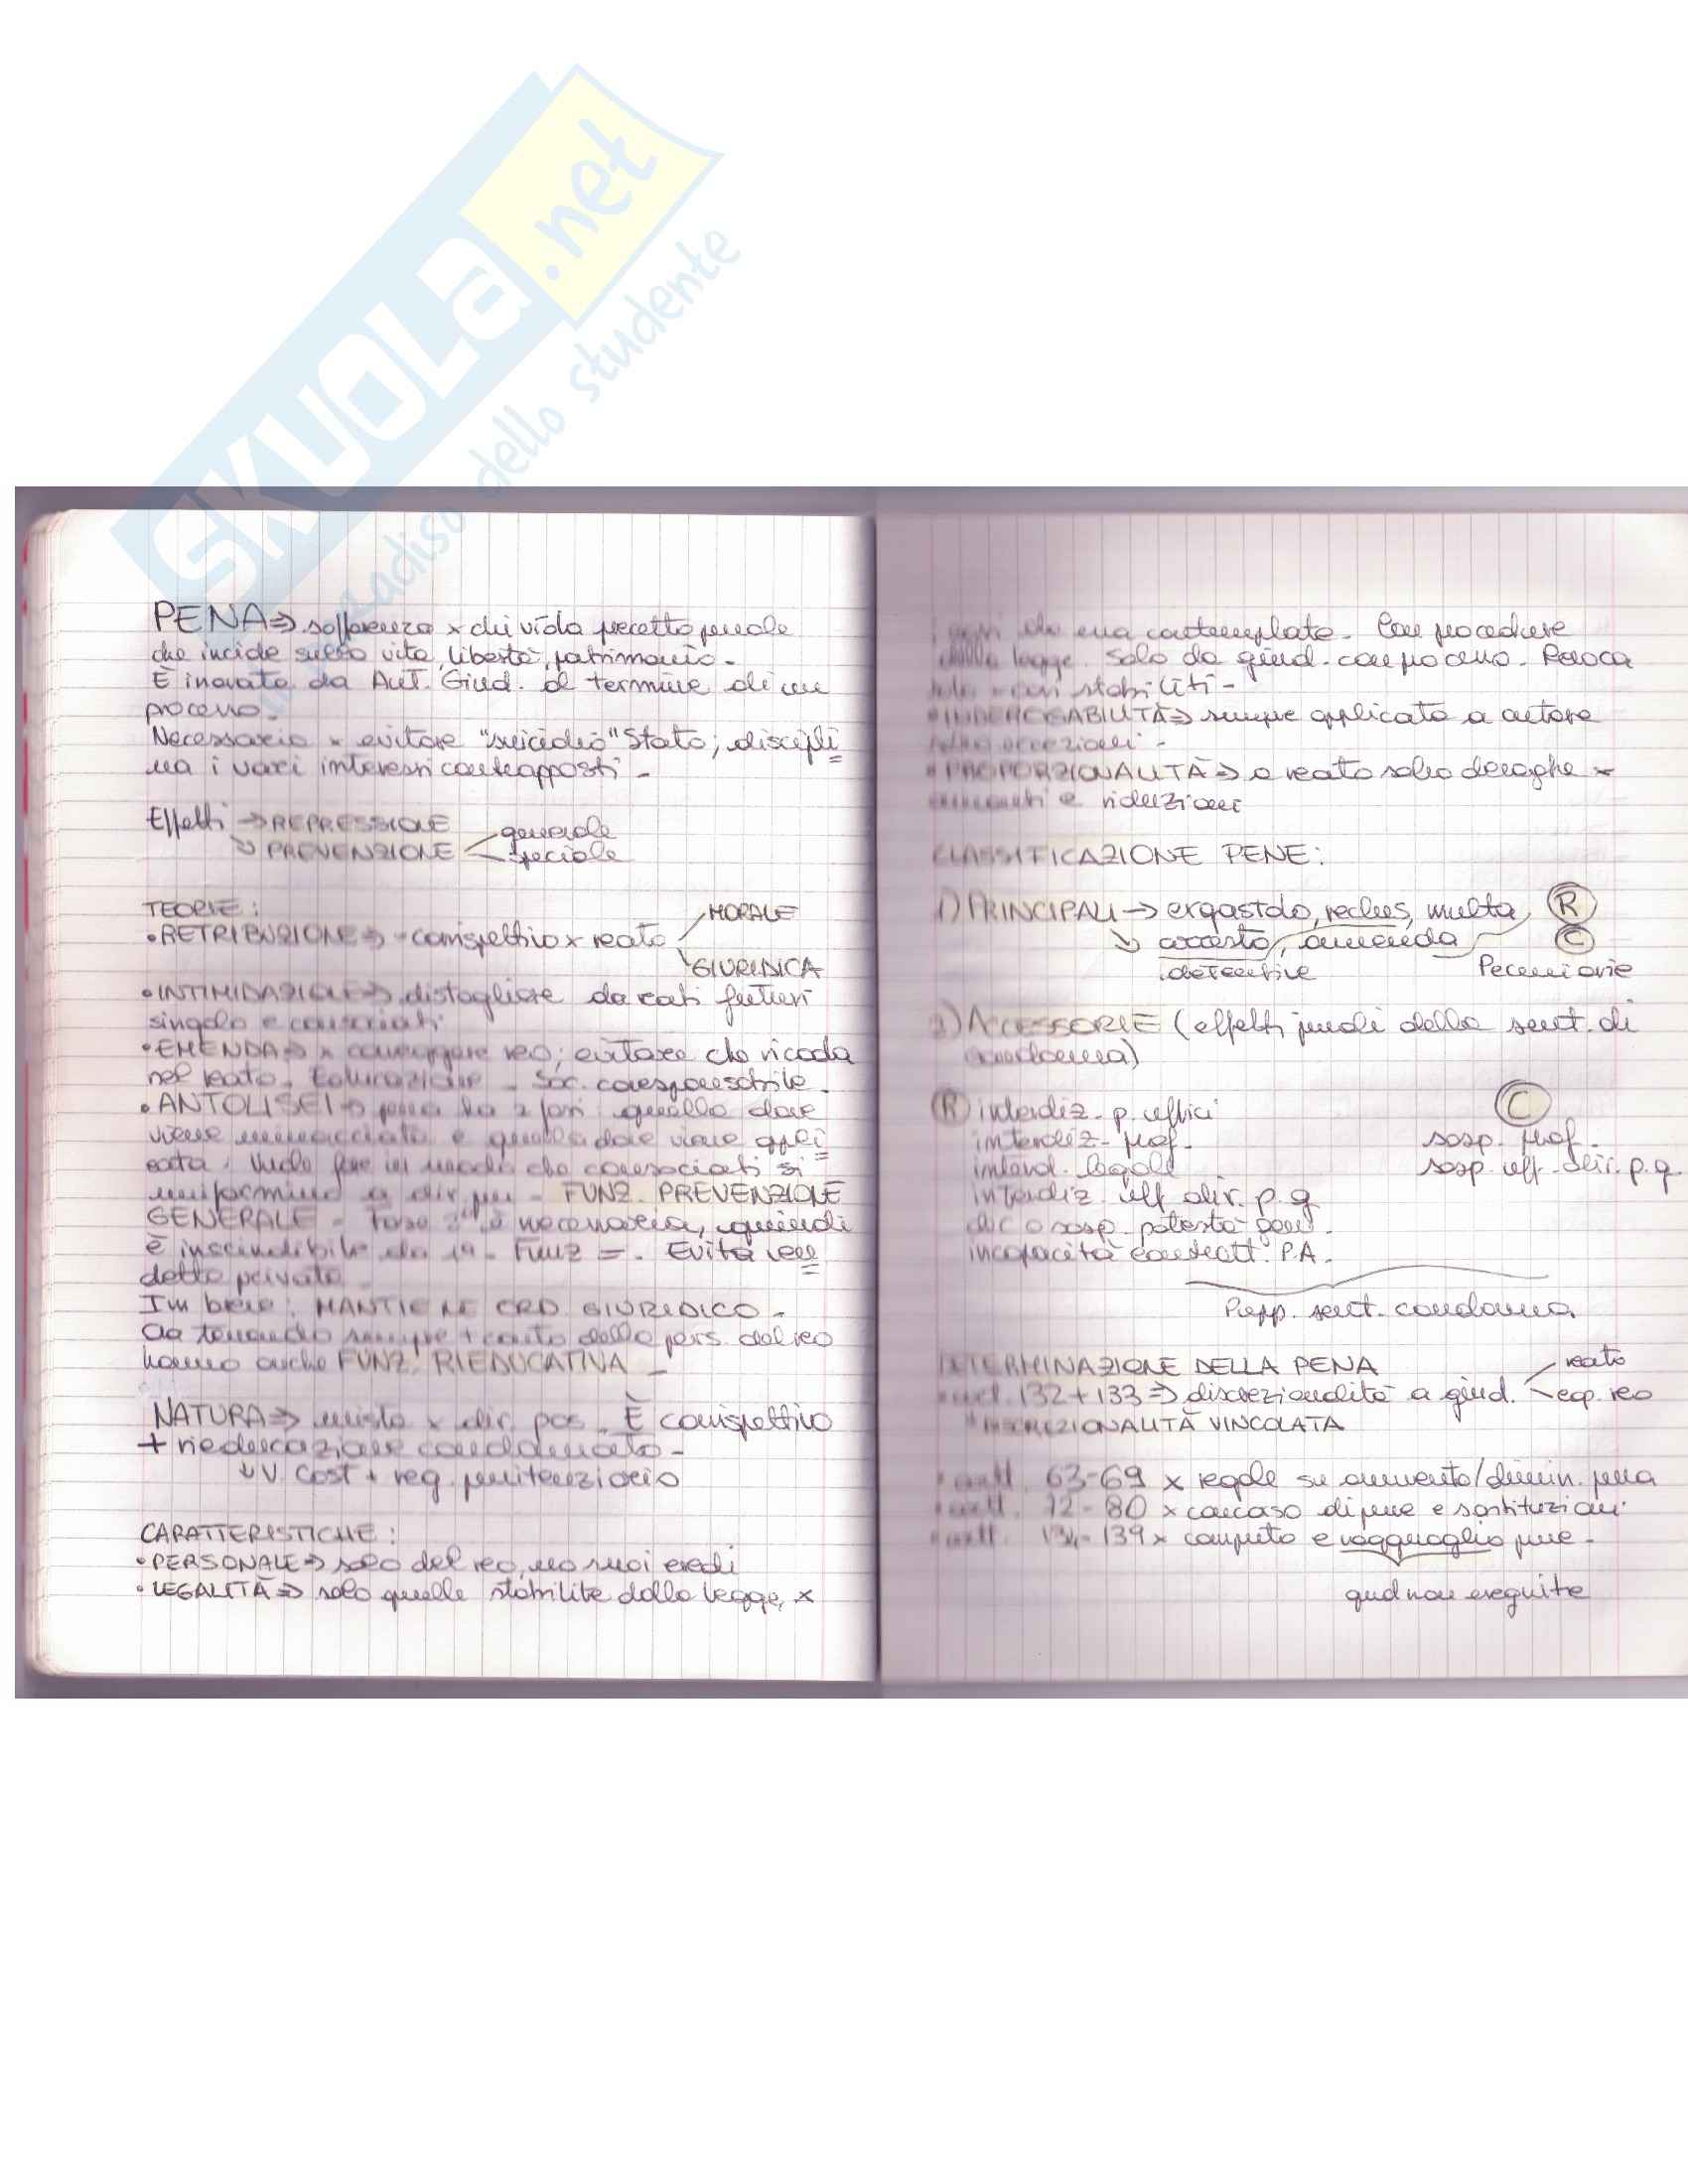 SKUOLA.net
dello studente
PENA => sofferenza x chi viola precetto penale
che incide sulla vita, libertà, patrimonio.
È inovata da Aut. Giud. al termine di un
processo.
Necessario x evitare "suicidio" Stato; discipli
na i vari interessi contrapposti.
Effetti -> REPRESSIONE
-> PREVENZIONE
generale
speciale
TEORIE:
• RETRIBUZIONE => corrispettivo x reato
MORALE
GIURIDICA
• INTIMIDAZIONE => distogliere da reati futuri
singolo e consociati
• EMENDA => x correggere reo; evitare che ricada
nel reato. Educazione. Soc. corresponsabile.
• ANTOLISEI -> pena ha 2 fasi: quella dove
viene minacciata e quella dove viene appli
cata. Vuole fare in modo che consociati si
uniformino a dir. pen. FUNZ. PREVENZIONE
GENERALE. Fase 2ª è necessaria, quindi
è inscindibile da 1ª. Funz =. Evita ven
detta privata.
In breve: MANTIENE ORD. GIURIDICO.
Ora tenendo sempre + conto della pers. del reo
hanno anche FUNZ. RIEDUCATIVA.
NATURA => mista x dir. pos. È corrispettivo
+ rieducazione condannato.
V. Cost + reg. penitenziario
CARATTERISTICHE:
• PERSONALE => solo del reo, no suoi eredi
• LEGALITÀ => solo quelle stabilite dalla legge, x
i casi da essa contemplate. Con procedure
della legge. Solo da giud. con processo. Revoca
casi stabiliti.
• INDEROGABILITÀ => sempre applicata a autore
salvo eccezioni.
• PROPORZIONALITÀ => a reato salvo deroghe x
aumenti e riduzioni
CLASSIFICAZIONE PENE:
1) PRINCIPALI -> ergastolo, reclus, multa, R
arresto, ammenda C
detentive Pecuniarie
2) ACCESSORIE (effetti penali della sent. di
condanna)
R interdiz. p. uffici
C
interdiz. prof.
sosp. prof.
interd. legale
sosp. uff. dir. p.g.
interdiz. uff. dir. p.g
dec o sosp. potestà gen.
incapacità contratt. P.A.
Pubb. sent. condanna
DETERMINAZIONE DELLA PENA
• art. 132+133 => discrezionalità a giud.
reato
cap. reo
DISCREZIONALITÀ VINCOLATA
• artt. 63-69 x regole su aumento/dimin. pena
• artt. 72-80 x concorso di pene e sostituzioni
• artt. 134-139 x computo e ragguaglio pene.
qnd non eseguite